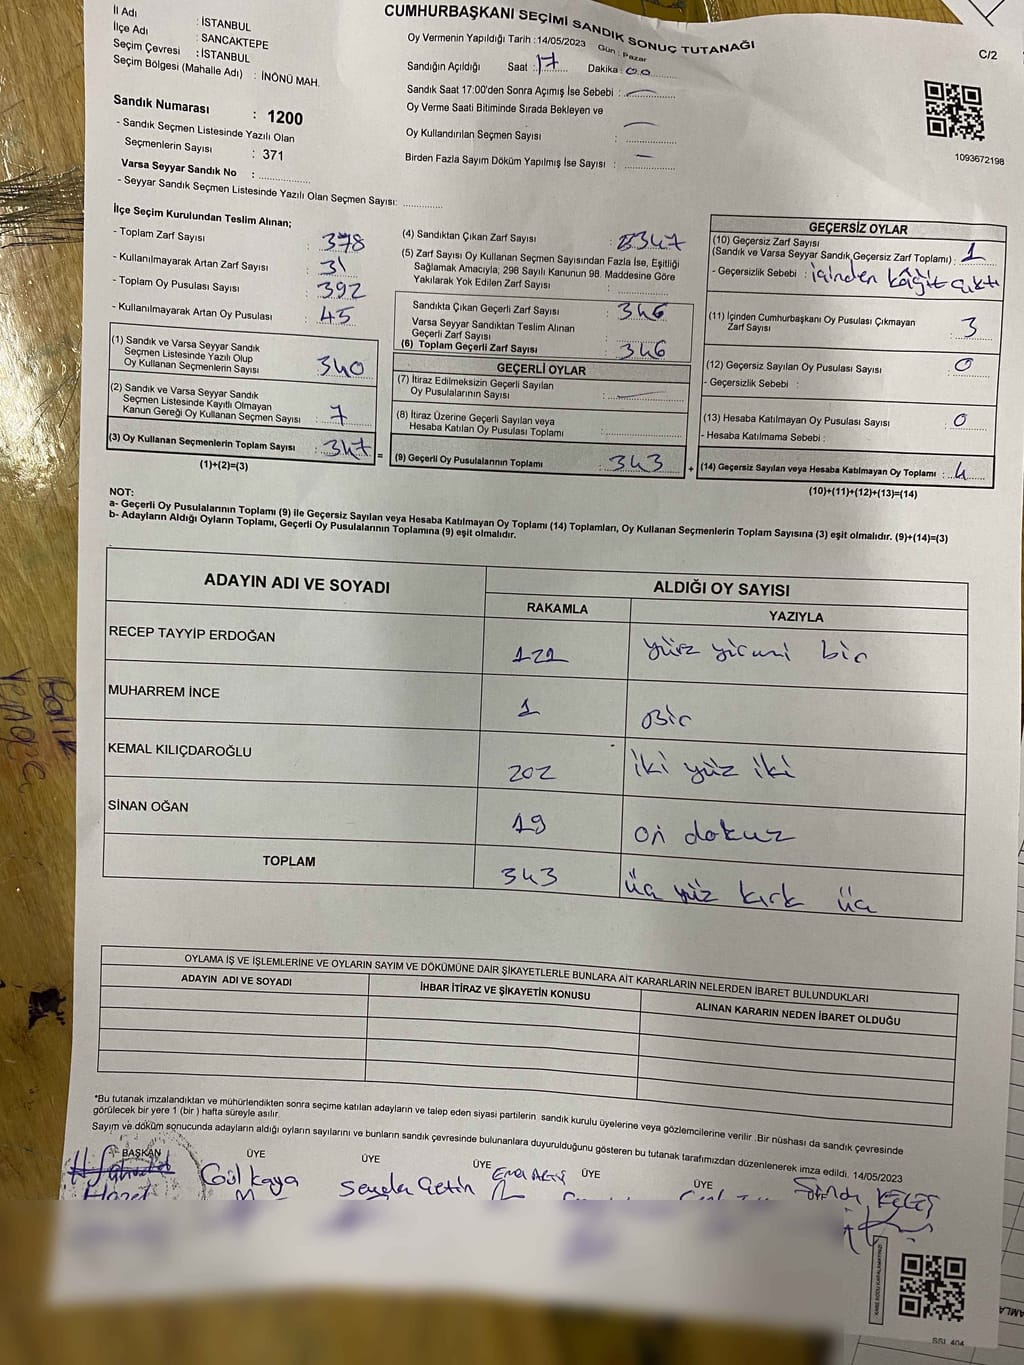 CUMHURBAŞKANI SEÇİMİ SANDIK SONUÇ TUTANAĞI
C/2
İl Adı : İSTANBUL
İlçe Adı : SANCAKTEPE
Seçim Çevresi : İSTANBUL
Seçim Bölgesi (Mahalle Adı) : İNÖNÜ MAH.
Sandık Numarası : 1200
- Sandık Seçmen Listesinde Yazılı Olan
Seçmenlerin Sayısı : 371
Varsa Seyyar Sandık No :
- Seyyar Sandık Seçmen Listesinde Yazılı Olan Seçmen Sayısı:
Oy Vermenin Yapıldığı Tarih : 14/05/2023 Gün : Pazar
Sandığın Açıldığı Saat : 17 Dakika : 00
Sandık Saat 17:00'den Sonra Açımış İse Sebebi :
Oy Verme Saati Bitiminde Sırada Bekleyen ve
Oy Kullandırılan Seçmen Sayısı :
Birden Fazla Sayım Döküm Yapılmış İse Sayısı : —
1093672198
İlçe Seçim Kurulundan Teslim Alınan;
- Toplam Zarf Sayısı : 378
- Kullanılmayarak Artan Zarf Sayısı : 31
- Toplam Oy Pusulası Sayısı : 392
- Kullanılmayarak Artan Oy Pusulası : 45
(1) Sandık ve Varsa Seyyar Sandık
Seçmen Listesinde Yazılı Olup
Oy Kullanan Seçmenlerin Sayısı : 340
(2) Sandık ve Varsa Seyyar Sandık
Seçmen Listesinde Kayıtlı Olmayan
Kanun Gereği Oy Kullanan Seçmen Sayısı : 7
(3) Oy Kullanan Seçmenlerin Toplam Sayısı : 347
(1)+(2)=(3)
(4) Sandıktan Çıkan Zarf Sayısı : 347
(5) Zarf Sayısı Oy Kullanan Seçmen Sayısından Fazla İse, Eşitliği
Sağlamak Amacıyla; 298 Sayılı Kanunun 98. Maddesine Göre
Yakılarak Yok Edilen Zarf Sayısı :
Sandıkta Çıkan Geçerli Zarf Sayısı : 346
Varsa Seyyar Sandıktan Teslim Alınan
Geçerli Zarf Sayısı :
(6) Toplam Geçerli Zarf Sayısı : 346
GEÇERLİ OYLAR
(7) İtiraz Edilmeksizin Geçerli Sayılan
Oy Pusulalarının Sayısı :
(8) İtiraz Üzerine Geçerli Sayılan veya
Hesaba Katılan Oy Pusulası Toplamı :
= (9) Geçerli Oy Pusulalarının Toplamı : 343
GEÇERSİZ OYLAR
(10) Geçersiz Zarf Sayısı
(Sandık ve Varsa Seyyar Sandık Geçersiz Zarf Toplamı) : 1
- Geçersizlik Sebebi : içinden kâğıt çıktı
(11) İçinden Cumhurbaşkanı Oy Pusulası Çıkmayan
Zarf Sayısı : 3
(12) Geçersiz Sayılan Oy Pusulası Sayısı : 0
- Geçersizlik Sebebi :
(13) Hesaba Katılmayan Oy Pusulası Sayısı : 0
- Hesaba Katılmama Sebebi :
+ (14) Geçersiz Sayılan veya Hesaba Katılmayan Oy Toplamı : 4
(10)+(11)+(12)+(13)=(14)
NOT:
a- Geçerli Oy Pusulalarının Toplamı (9) ile Geçersiz Sayılan veya Hesaba Katılmayan Oy Toplamı (14) Toplamları, Oy Kullanan Seçmenlerin Toplam Sayısına (3) eşit olmalıdır. (9)+(14)=(3)
b- Adayların Aldığı Oyların Toplamı, Geçerli Oy Pusulalarının Toplamına (9) eşit olmalıdır.
ADAYIN ADI VE SOYADI ALDIĞI OY SAYISI
RAKAMLA YAZIYLA
RECEP TAYYİP ERDOĞAN 121 yüz yirmi bir
MUHARREM İNCE 1 Bir
KEMAL KILIÇDAROĞLU 202 iki yüz iki
SİNAN OĞAN 19 on dokuz
TOPLAM 343 üç yüz kırk üç
OYLAMA İŞ VE İŞLEMLERİNE VE OYLARIN SAYIM VE DÖKÜMÜNE DAİR ŞİKAYETLERLE BUNLARA AİT KARARLARIN NELERDEN İBARET BULUNDUKLARI
ADAYIN ADI VE SOYADI İHBAR İTİRAZ VE ŞİKAYETİN KONUSU ALINAN KARARIN NEDEN İBARET OLDUĞU
*Bu tutanak imzalandıktan ve mühürlendikten sonra seçime katılan adayların ve talep eden siyasi partilerin sandık kurulu üyelerine veya gözlemcilerine verilir. Bir nüshası da sandık çevresinde
görülecek bir yere 1 (bir ) hafta süreyle asılır.
Sayım ve döküm sonucunda adayların aldığı oyların sayılarını ve bunların sandık çevresinde bulunanlara duyurulduğunu gösteren bu tutanak tarafımızdan düzenlenerek imza edildi. 14/05/2023
BAŞKAN ÜYE ÜYE ÜYE ÜYE ÜYE ÜYE
Gül kaya Seyda Çetin KELEŞ
SSİ 404